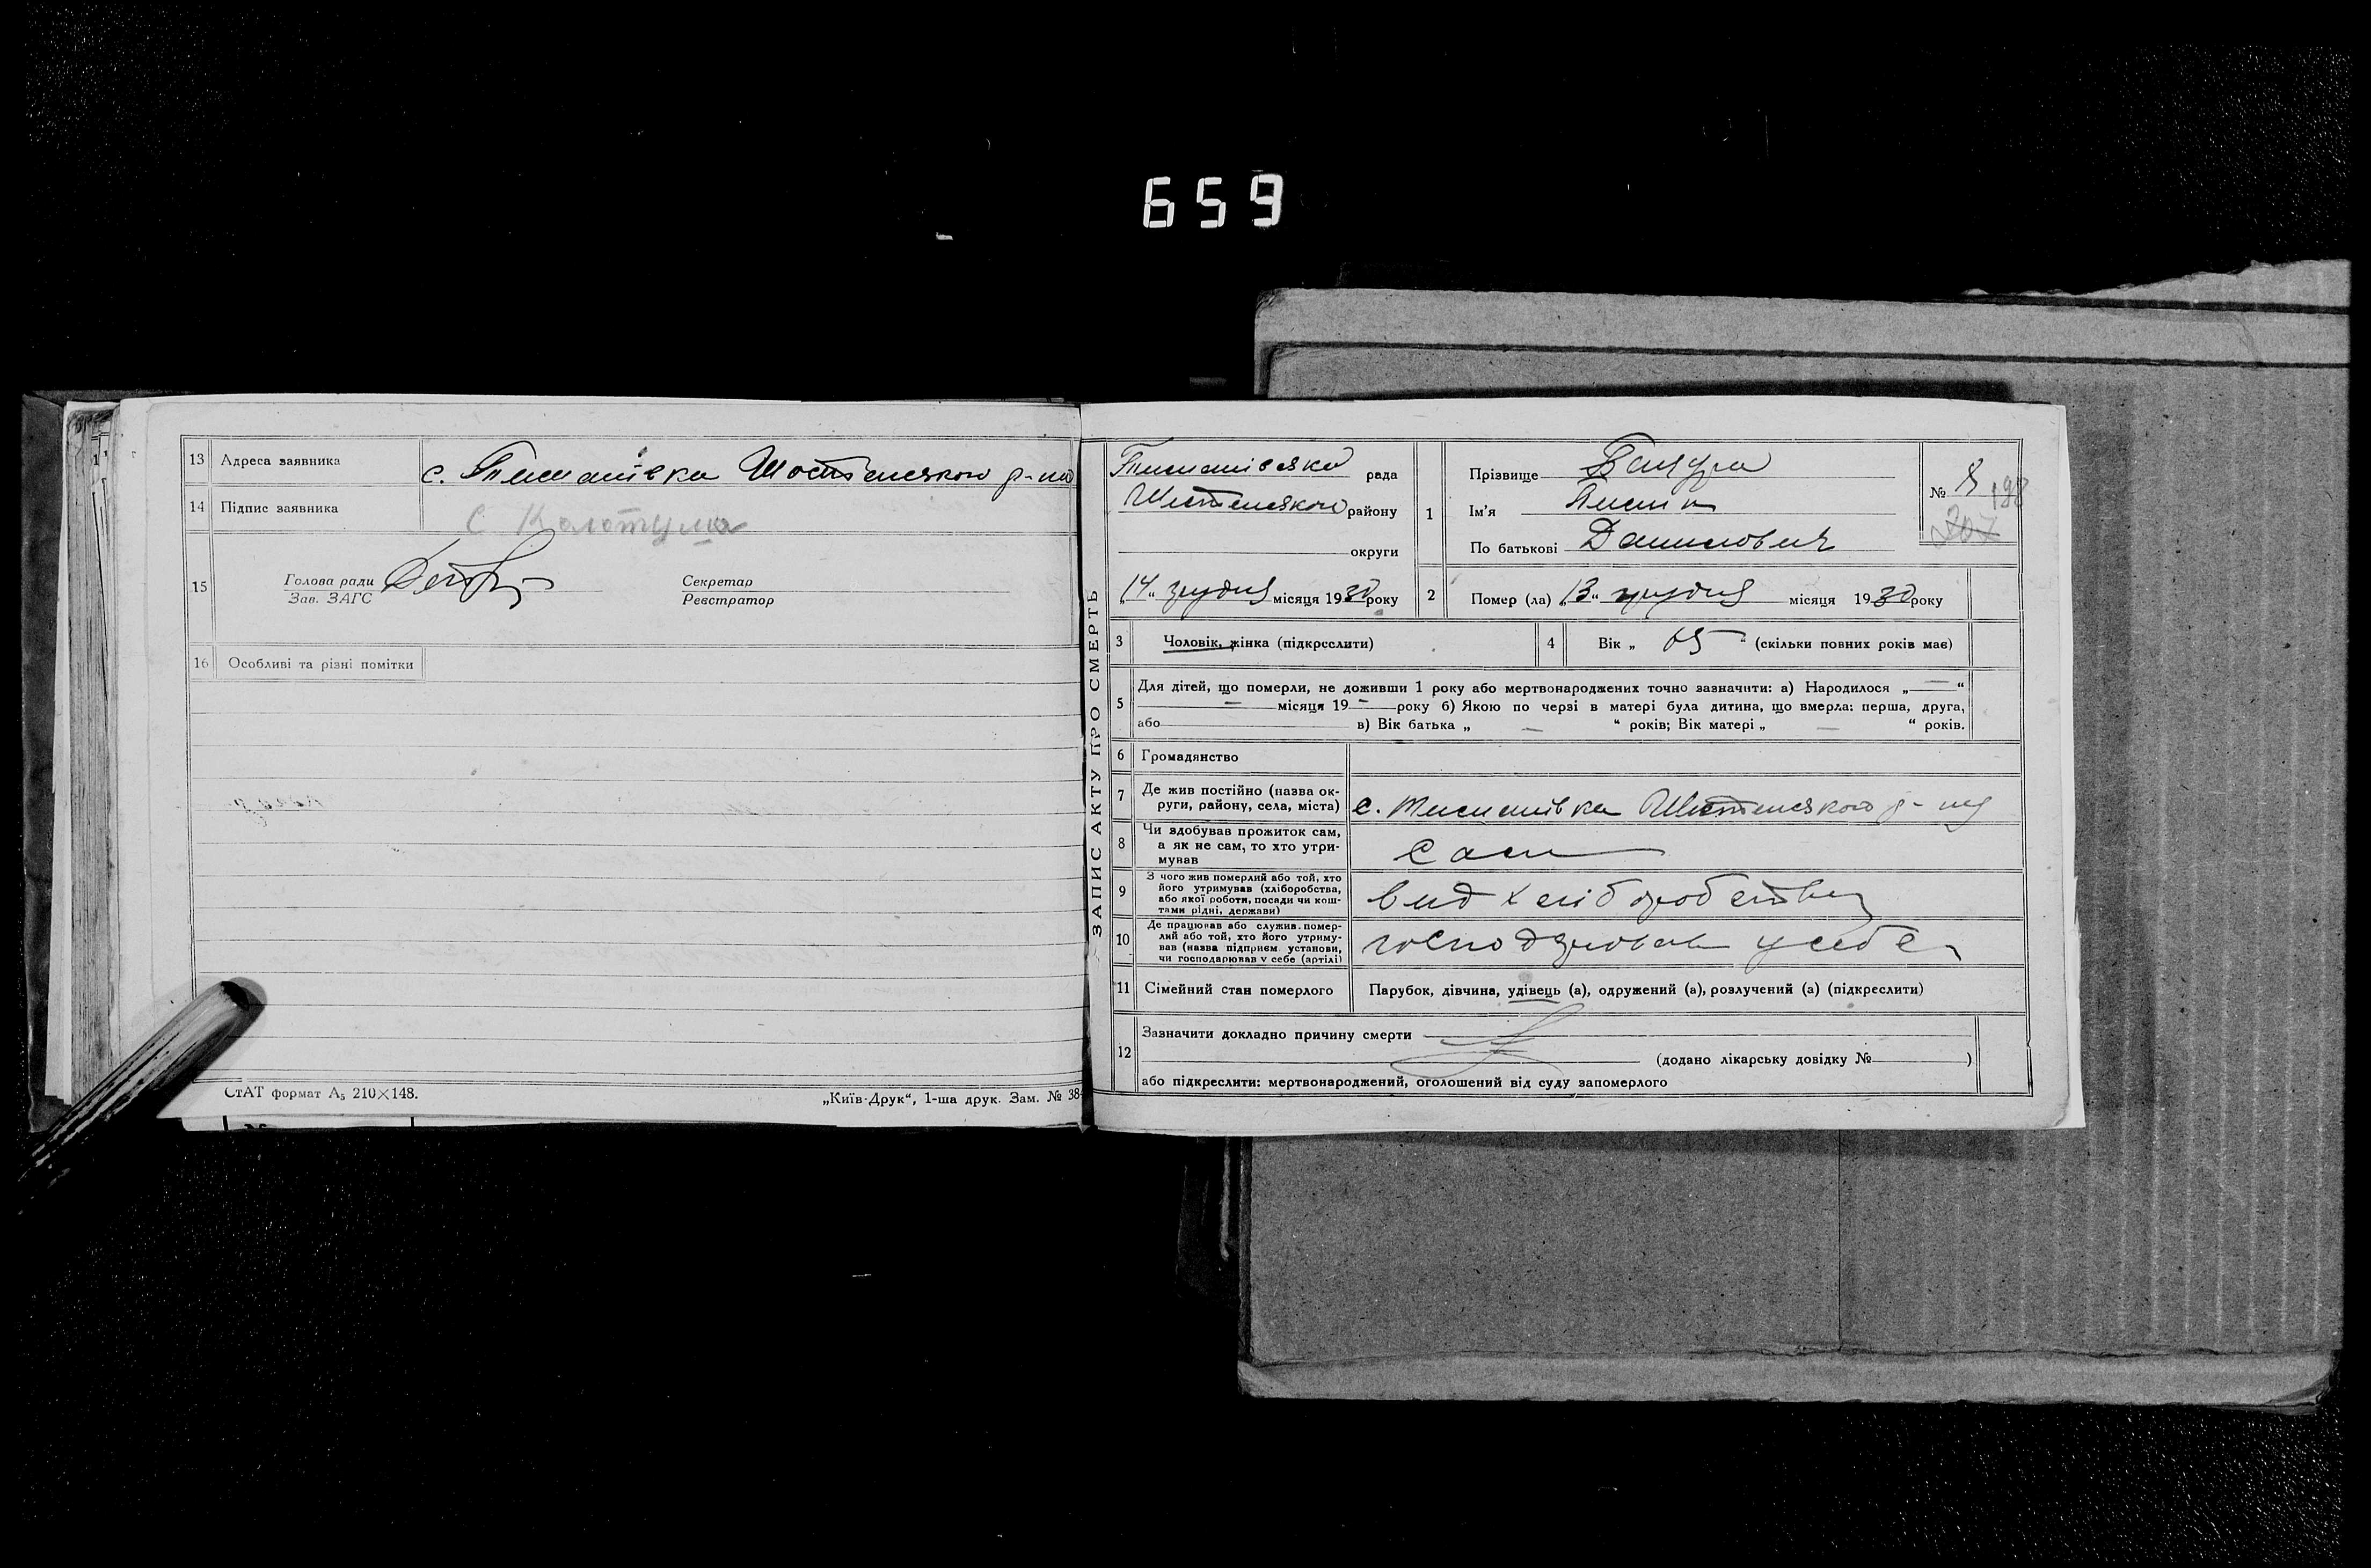 659
13 Адреса заявника с. Тиманівка Шостенського р-ну
14 Підпис заявника С Колотуша
15 Голова ради
Зав. ЗАГС
Секретар
Реєстратор
16 Особливі та різні помітки
СтАТ формат А₅ 210×148.
„Київ-Друк“, 1-ша друк. Зам. № 38
ЗАПИС АКТУ ПРО СМЕРТЬ
рада
району
округи
„14“ грудня місяця 1930 року
1 Прізвище
Ім'я
По батькові Данилович
№ 8
198
207
2 Помер (ла) „13“ грудня місяця 1930 року
3 Чоловік, жінка (підкреслити)
4 Вік „65“ (скільки повних років має)
5 Для дітей, що померли, не доживши 1 року або мертвонароджених точно зазначити: а) Народилося „—“
— місяця 19 — року б) Якою по черзі в матері була дитина, що вмерла: перша, друга,
або в) Вік батька „ — “ років; Вік матері „ — “ років.
6 Громадянство
7 Де жив постійно (назва ок-
руги, району, села, міста) с. р-ну
8 Чи здобував прожиток сам,
а як не сам, то хто утри-
мував
Сам
9 З чого жив померлий або той, хто
його утримував (хліборобства,
або якої роботи, посади чи кош-
тами рідні, держави)
вид хліборобства
10 Де працював або служив помер-
лий або той, хто його утриму-
вав (назва підприєм. установи,
чи господарював у себе (артілі)
господарював у себе
11 Сімейний стан померлого Парубок, дівчина, удівець (а), одружений (а), розлучений (а) (підкреслити)
12 Зазначити докладно причину смерти
(додано лікарську довідку № )
або підкреслити: мертвонароджений, оголошений від суду запомерлого